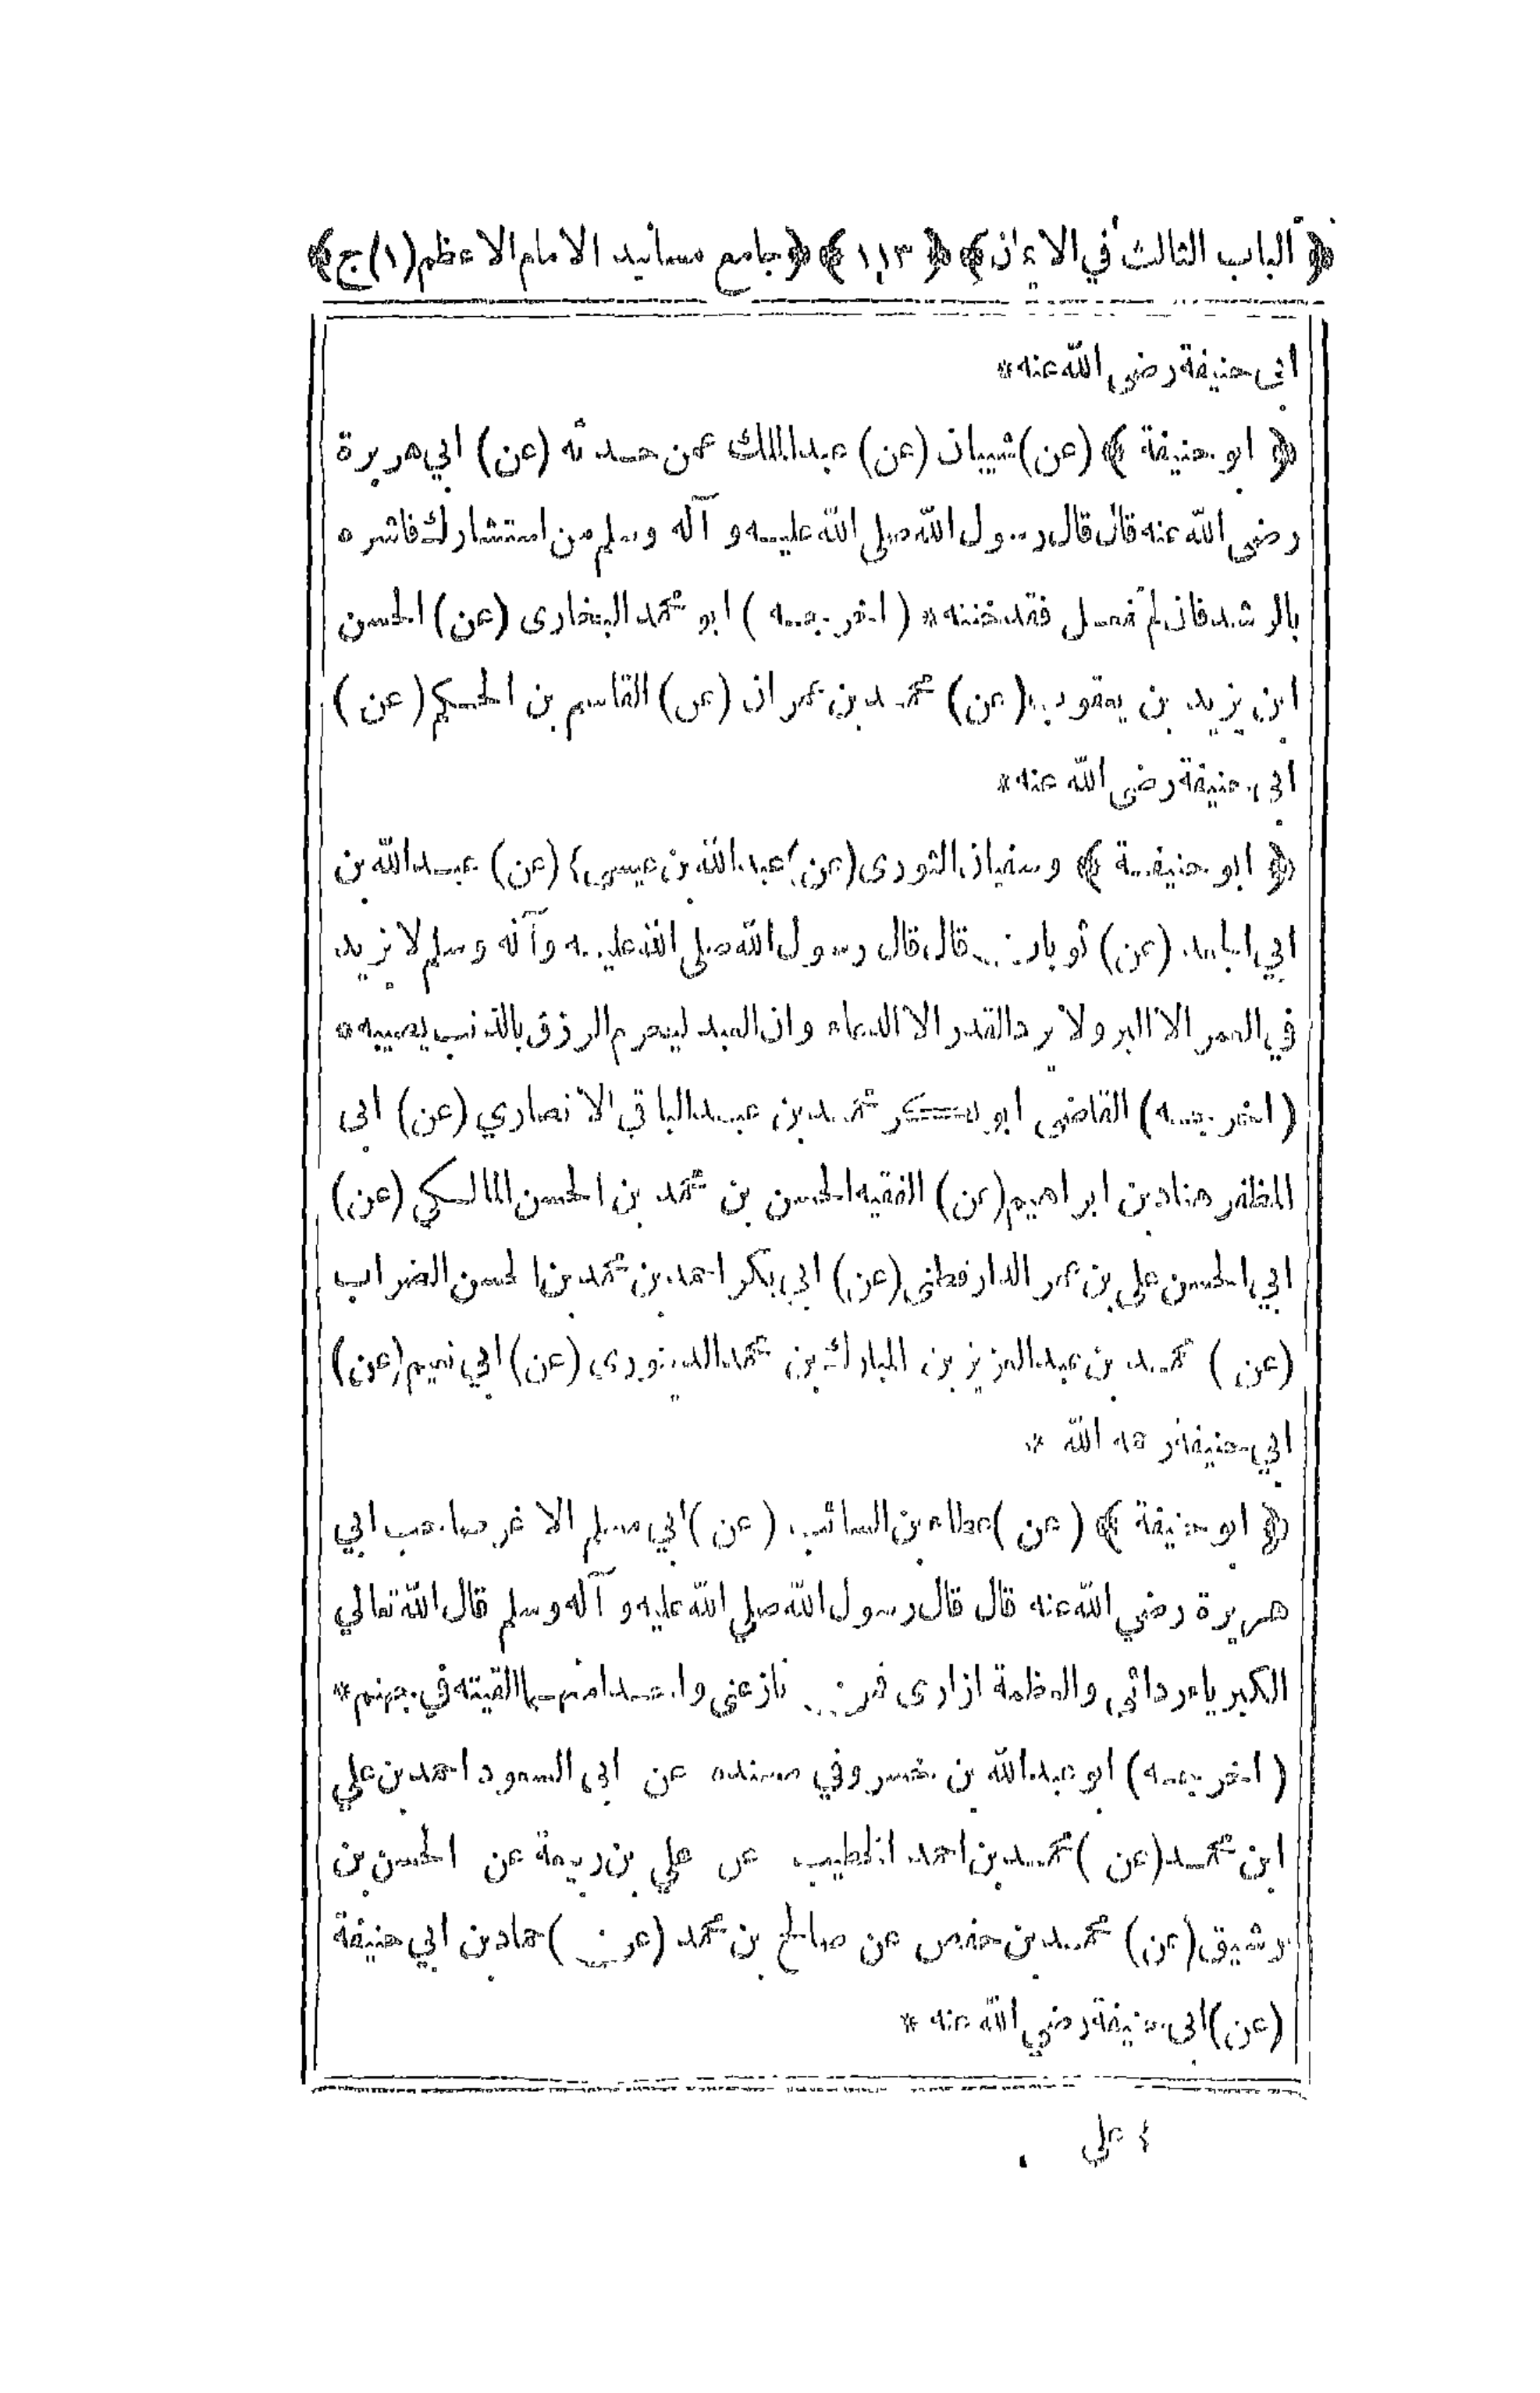 ﴿ الباب الثالث في الايمان ﴾ ﴿ ١١٣ ﴾ ﴿ جامع مسانيد الامام الاعظم (١) ج ﴾
ابى حنيفة رضى الله عنه *
﴿ ابو حنيفة ﴾ (عن) شيبان (عن) عبد الملك عمن حدثه (عن) ابي هريرة
رضى الله عنه قال قال رسول الله صلى الله عليه و آله وسلم من استشارك فاشره
بالرشد فان لم تفعل فقد خنته * (اخرجه) ابو محمد البخارى (عن) الحسن
ابن يزيد بن يعقوب (عن) محمد بن عمران (عن) القاسم بن الحكم (عن)
ابى حنيفة رضى الله عنه *
﴿ ابو حنيفة ﴾ وسفيان الثورى (عن) عبد الله بن عيسى (عن) عبد الله بن
ابي الجعد (عن) ثوبان قال قال رسول الله صلى الله عليه وآله وسلم لا يزيد
في العمر الا البر ولا يرد القدر الا الدعاء وان العبد ليحرم الرزق بالذنب يصيبه *
(اخرجه) القاضى ابو بكر محمد بن عبد الباقي الانصاري (عن) ابى
المظفر هناد بن ابراهيم (عن) الفقيه الحسن بن محمد بن الحسن المالكي (عن)
ابي الحسن علي بن عمر الدارقطنى (عن) ابي بكر احمد بن محمد بن الحسن الضراب
(عن) محمد بن عبد العزيز بن المبارك بن محمد الدينورى (عن) ابي نعيم (عن)
ابي حنيفة رحمه الله *
﴿ ابو حنيفة ﴾ (عن) عطاء بن السائب (عن) ابي مسلم الاغر صاحب ابي
هريرة رضي الله عنه قال قال رسول الله صلى الله عليه و آله وسلم قال الله تعالى
الكبرياء ردائي والعظمة ازارى فمن نازعنى واحدا منهما القيته في جهنم *
(اخرجه) ابو عبد الله بن خسرو في مسنده عن ابى السعود احمد بن علي
ابن محمد (عن) محمد بن احمد الخطيب عن علي بن ربيعة عن الحسن بن
رشيق (عن) محمد بن حفص عن صالح بن محمد (عن) حماد بن ابي حنيفة
(عن) ابى حنيفة رضي الله عنه *
علي